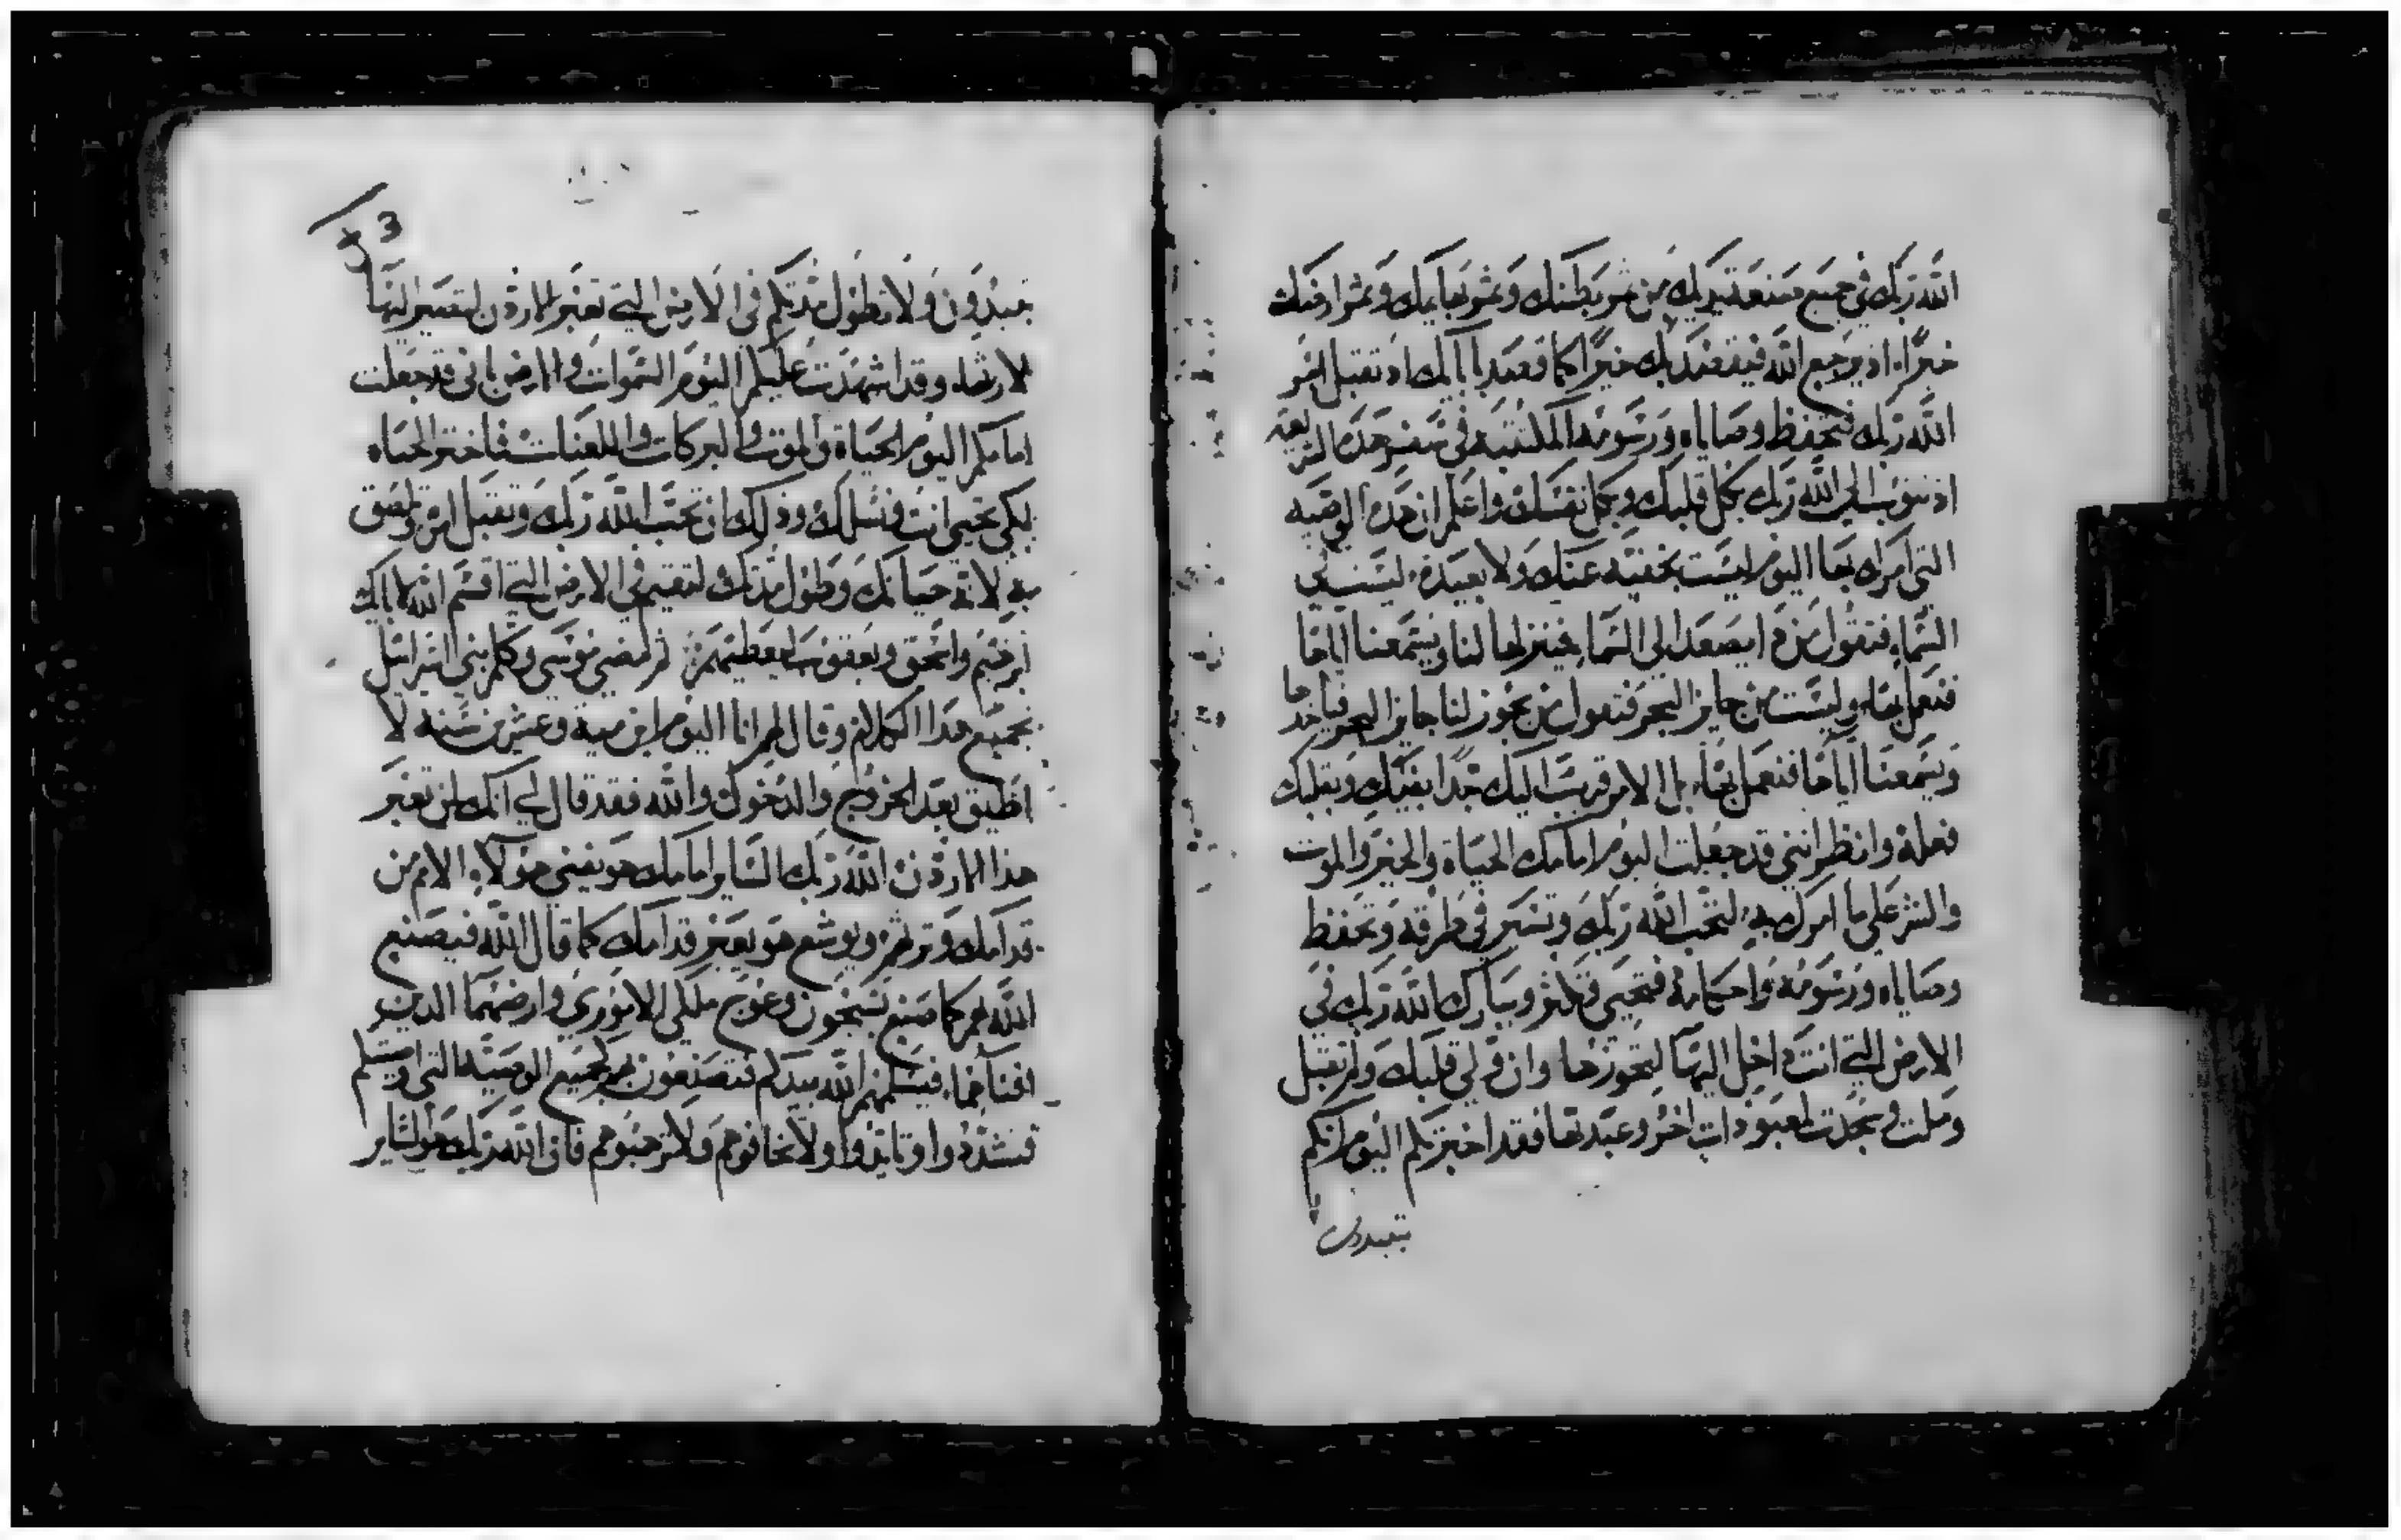 الله ربك في جميع صنعة يديك من ثمر بطنك وثمر بهايمك وثمر ارضك
خيرًا، اذ يرجع الله فيفعل بك خيرًا كما فعل باباك اذ تقبل امر
الله ربك فتحفظ وصاياه ورسومه المكتتبه في سفر هذه الشريعة
اذ تتوب الى الله ربك بكل قلبك وبكل نفسك واعلم ان هذه الوصيه
التي امرك بها اليوم ليست بخفيه عنك ولا بعيدة، ليست في
السماء فتقول من ذا يصعد الى السماء فينزلها لنا ويسمعنا اياها
فنعمل بها، وليست من جايز البحر فتقول من يجوز لنا جايز البحر فياخدها
ويسمعنا اياها فنعمل بها، بل الامر قريب اليك جدا بفيك وبقلبك
فعله وانظر انني قد جعلت اليوم امامك الحياة والخير والموت
والشر على ما امرك به، لتحب الله ربك وتسير في طرقه وتحفظ
وصاياه ورسومه واحكامه فتحيى وتكثر ويبارك الله ربك في
الارض التي انت داخل اليها لتحوزها وان ولى قلبك ولم تقبل
وملت وسجدت لمعبودات اخر وعبدتها فقد اخبرتكم اليوم انكم
تبيدون
تبيدون ولا تطول مدتكم في الارض التي تعبر الاردن لتصير اليها
لارثها، وقد اشهدت عليكم اليوم السموات والارض باني قد جعلت
امامكم اليوم الحياة والموت والبركات واللعنات فاختر الحياه
لكي تحيى انت ونسلك وذلك ان تحب الله ربك وتقبل امره وتلصق
به لانه حياتك وطول مدتك لتقيم في الارض التي اقسم الله لاباك
ابرهيم واسحق ويعقوب ليعطيهم ثم مضى موسى وكلم بني اسرائيل
بجميع هذا الكلام وقال لهم انا اليوم ابن مية وعشرين سنه لا
اطيق بعد الخروج والدخول والله فقد قال لي انك لن تعبر
هذا الاردن الله ربك الساير امامك هو يفني هولاء الامم من
قدامك وترثهم ويوشع هو يعبر قدامك كما قال الله فيصنع
الله بهم كما صنع بسيحون وعوج ملكي الاموري وارضهما الدين
افناهما، فيسلمهم الله بيدكم فتصنعون بهم بجميع الوصيه التي اوصيتكم
فتشددوا وتايدوا ولا تخافوهم ولا ترهبوهم فان الله ربك هو الساير